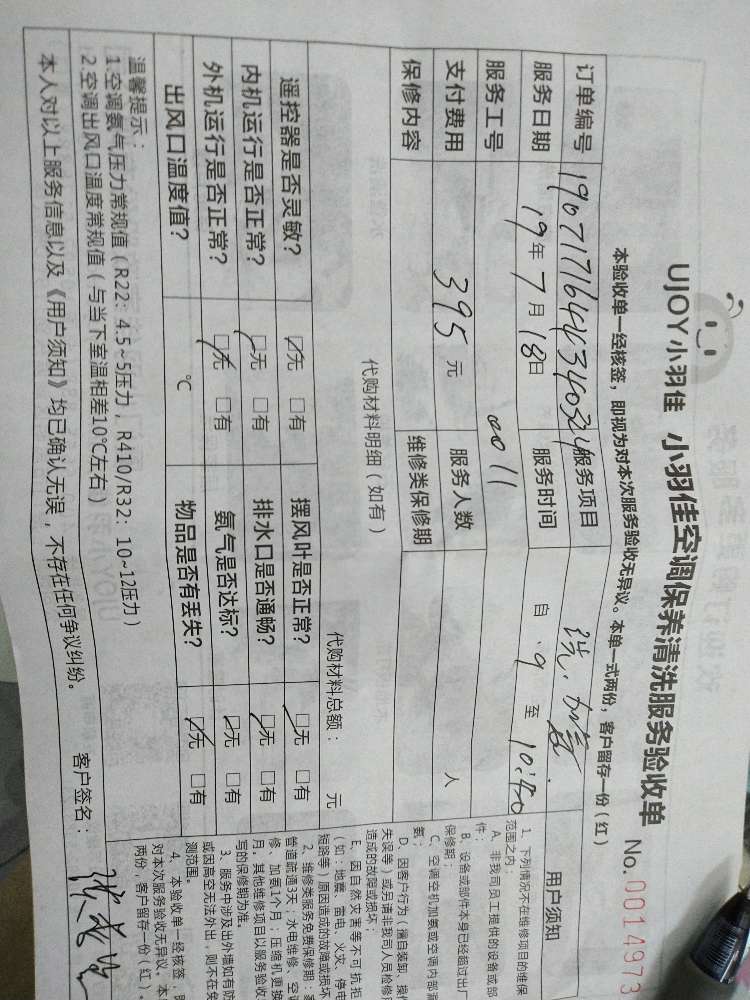 UJOY小羽佳 小羽佳空调保养清洗服务验收单 No.0014973
本验收单一经核签，即视为对本次服务验收无异议。本单一式两份，客户留存一份（红）
订单编号 服务项目 洗.加氨
服务日期 19年7月18日 服务时间 自.9至10:40
服务工号 0011
支付费用 395元 服务人数 人
保修内容 维修类保修期
代购材料明细（如有）
代购材料总额： 元
遥控器是否灵敏？ ☑无 □有 摆风叶是否正常？ ☑无 □有
内机运行是否正常？ ☑无 □有 排水口是否通畅？ ☑无 □有
外机运行是否正常？ ☑无 □有 氨气是否达标？ ☑无 □有
出风口温度值？ ℃ 物品是否有丢失？ ☑无 □有
温馨提示：
1.空调氨气压力常规值（R22：4.5~5压力，R410/R32：10~12压力）
2.空调出风口温度常规值（与当下室温相差10℃左右）
本人对以上服务信息以及《用户须知》均已确认无误，不存在任何争议纠纷。 客户签名：
用户须知
1、下列情况不在维修项目的维保
范围之内：
A、非我司员工提供的设备或部
件；
B、设备或部件本身已经超过出厂
保修期；
C、空调空机加氨或空调内部漏
氨；
D、因客户行为（擅自装卸、操作
失误等）或另请非我司人员检修
造成的故障或损坏；
E、因自然灾害等不可抗拒
（如：地震、雷电、火灾、停电
短路等）原因造成的故障或损坏
2、维修类服务免费保修期：
管道疏通3天；水电维修、空调
修、加氨1个月；压缩机更换
月，其他维修项目以服务验收
写的保修期为准。
3、服务中涉及出外墙如有防
或因高空无法外出，则不在
测范围。
4、本验收单一经核签，即
对本次服务验收无异议。本
两份，客户留存一份（红）。